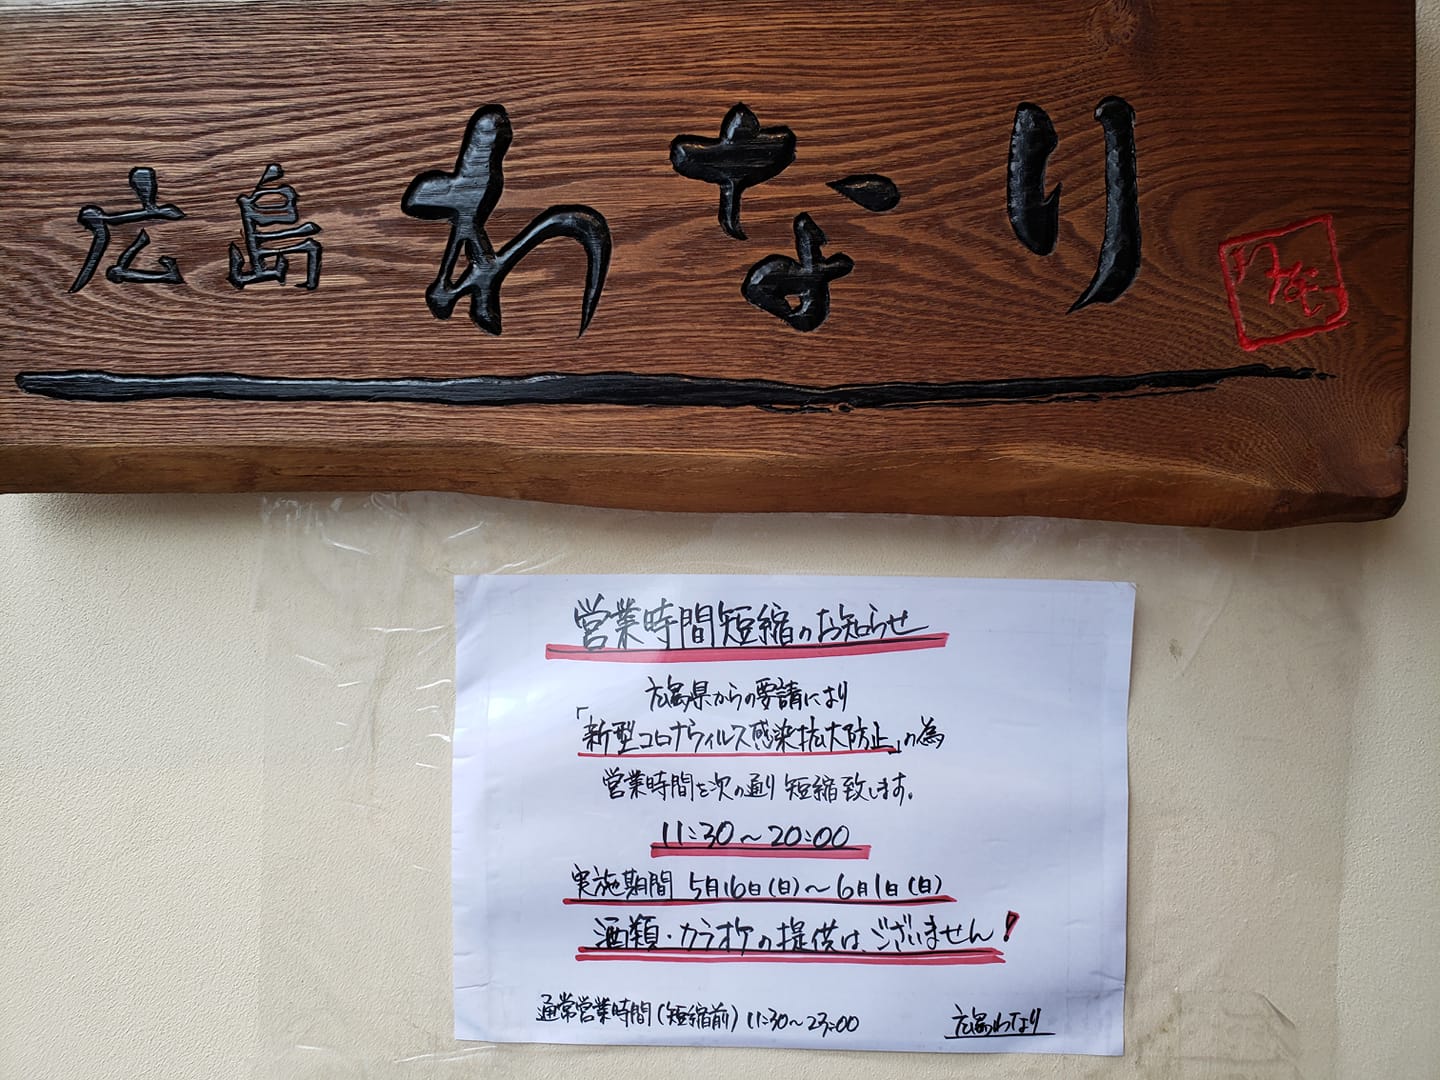 広島 わなり
営業時間短縮のお知らせ
広島県からの要請により
「新型コロナウィルス感染拡大防止」の為
営業時間を次の通り短縮致します。
11:30～20:00
実施期間 5月16日(日)～6月1日(日)
酒類・カラオケの提供は、ございません!
通常営業時間(短縮前) 11:30～23:00
広島わなり